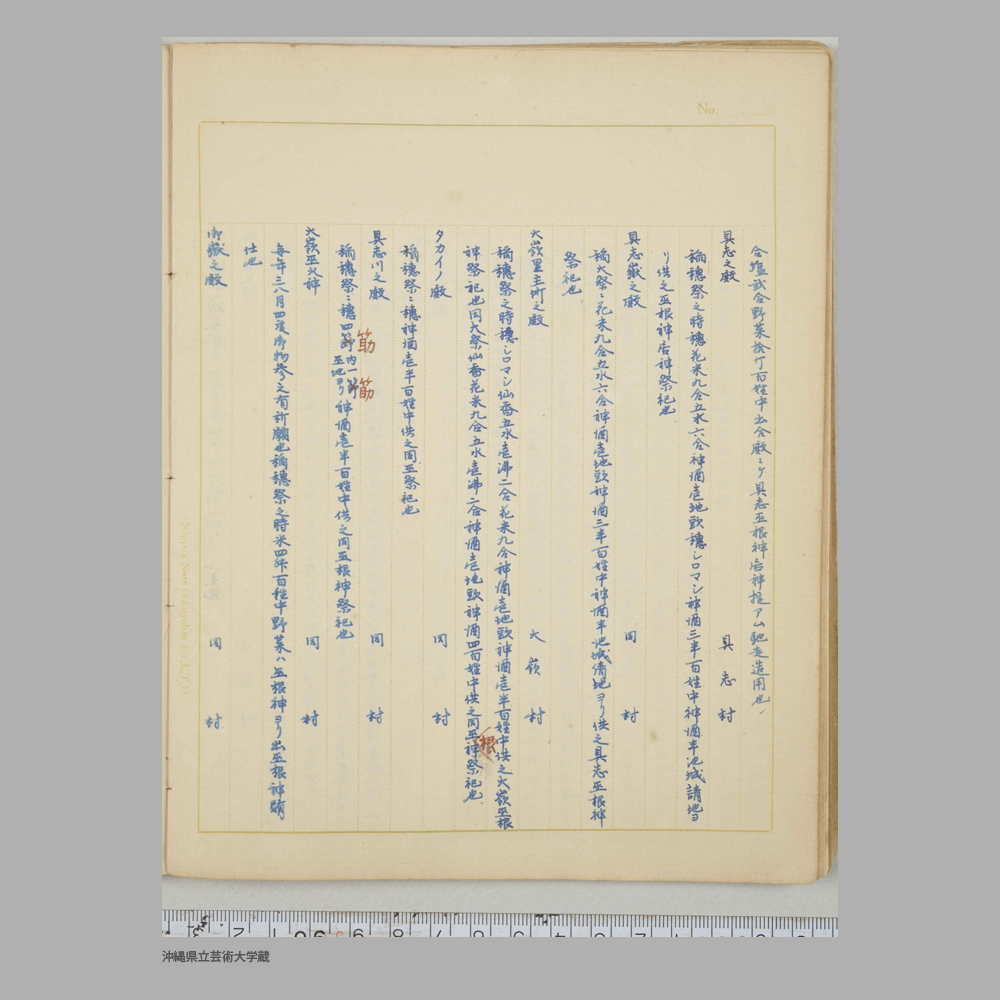 No.
合塩弐合野菜拾仃百姓中出合殿ニケ具志巫根神居神提アム馳走造用也、
具志之殿　具志村
稲穂祭之時穂花米九合五水六合神酒壱地頭穂シロマシ神酒三半百姓中神酒半池城請地ヨ
リ供之巫根神居神祭祀也
具志嶽之殿　同村
稲大祭ニ花米九合五水六合神酒壱地頭神酒三半百姓中神酒半池城請地ヨリ供之具志巫根神
祭祀也
大嶺里主所之殿　大嶺村
稲穂祭之時穂シロマシ仙香五水壱沸二合花米九合神酒壱地頭神酒壱半百姓中供之大嶺巫根
神祭祀也同大祭仙香花米九合五水壱沸二合神酒壱地頭神酒四百姓中供之同巫根神祭祀也
タカイノ殿　同村
稲穂祭ニ穂神酒壱半百姓中供之同巫祭祀也
具志川之殿　同村
稲穂祭ニ穂四筋内一筋巫地ヨリ神酒壱半百姓中供之同巫根神祭祀也
大嶺巫火神　同村
毎年三八月四度御物参之有祈願也稲穂祭之時米四舛百姓中野菜ハ巫根神ヨリ出巫根神賄
仕也
御嶽之殿　同村
沖縄県立芸術大学蔵